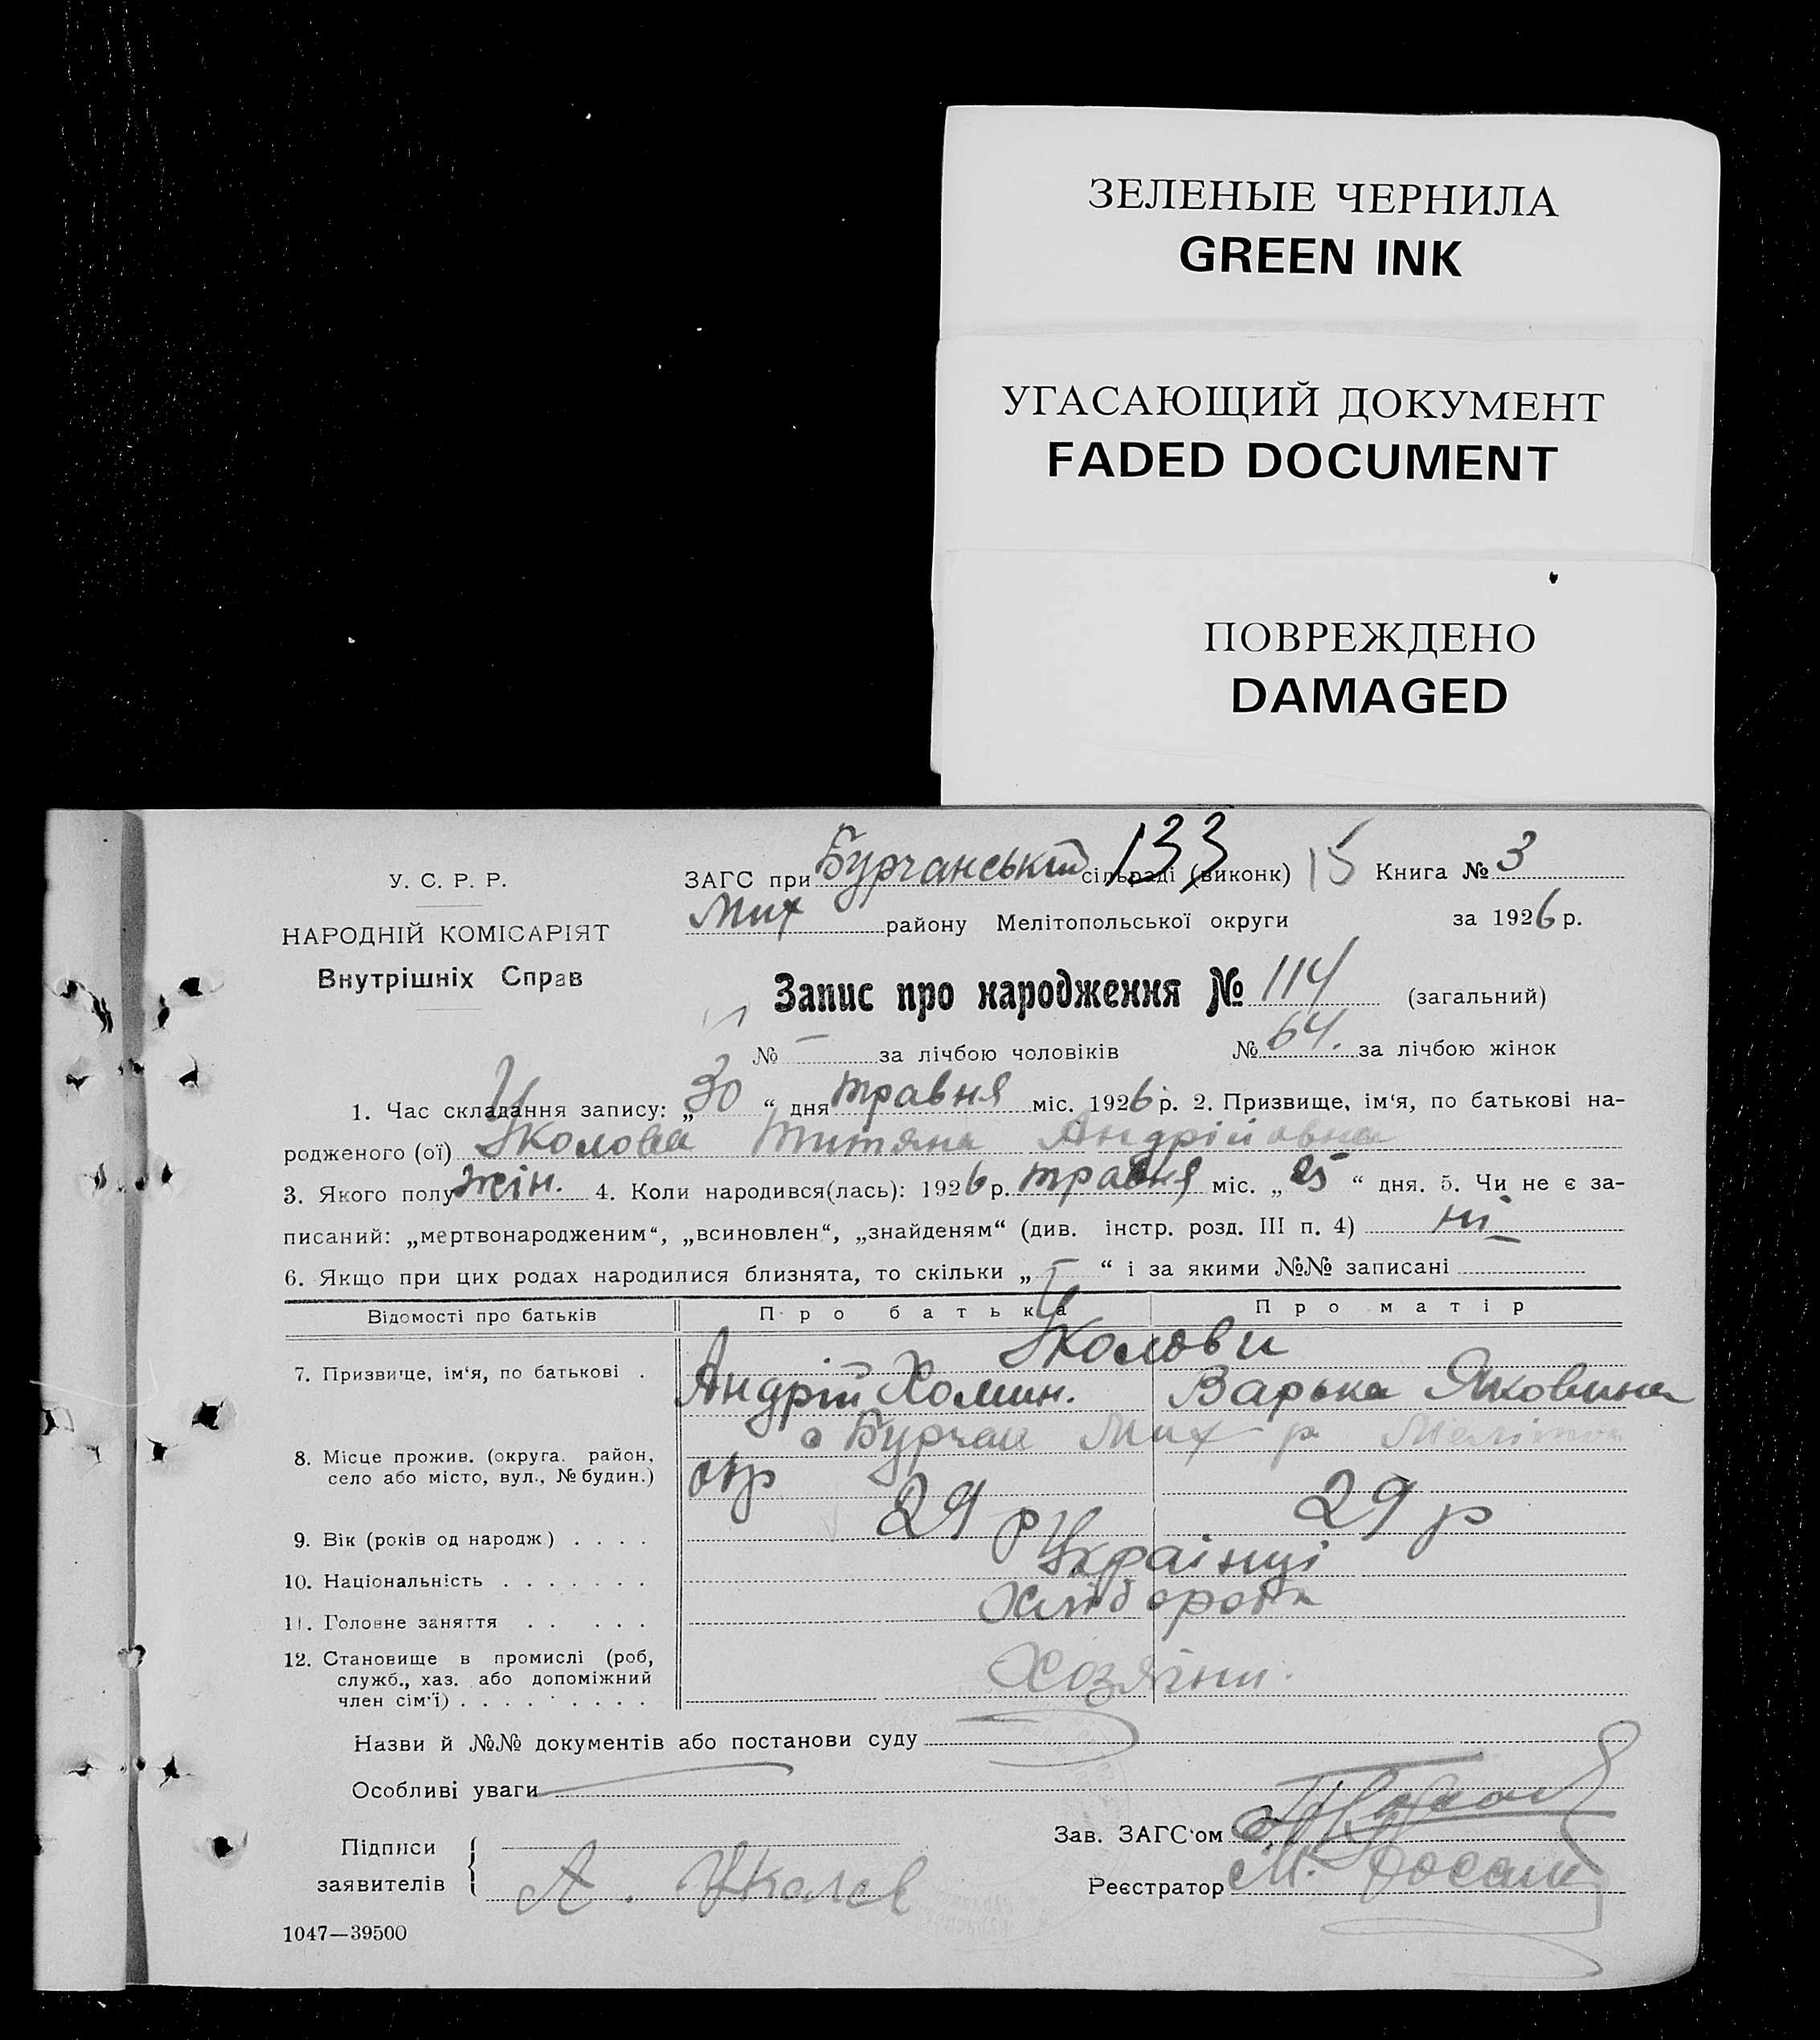 ЗЕЛЕНЫЕ ЧЕРНИЛА
GREEN INK
УГАСАЮЩИЙ ДОКУМЕНТ
FADED DOCUMENT
ПОВРЕЖДЕНО
DAMAGED
У. С. Р. Р.
НАРОДНІЙ КОМІСАРІЯТ
Внутрішніх Справ
133
ЗАГС при Бурчанській сільраді (виконк) 15 Книга № 3
Мих району Мелітопольської округи за 1926 р.
Запис про народження № 114 (загальний)
№ — за лічбою чоловіків № 64. за лічбою жінок
1. Час складання запису: „30“ дня травня міс. 1926 р. 2. Призвище, ім‘я, по батькові на-
родженого (ої) Уколова Титяна Андрійовна
3. Якого полу жін. 4. Коли народився(лась): 1926 р. травня міс. „25“ дня. 5. Чи не є за-
писаний: „мертвонародженим“, „всиновлен“, „знайденям“ (див. інстр. розд. III п. 4) ні
6. Якщо при цих родах народилися близнята, то скільки „—“ і за якими №№ записані
Відомості про батьків Про батька Про матір
Уколови
7. Призвище, ім‘я, по батькові . Андрій Хомин. Варька Яковина
с Бурчак Мих р Меліт
8. Місце прожив. (округа. район,
село або місто, вул., № будин.) окр
9. Вік (років од народж) . . . . 29 р 29 р
10. Національність . . . . . . . Українці
11. Головне заняття . . . . . Хлібороби
12. Становище в промислі (роб,
служб., хаз. або допоміжний
член сім‘ї) . . . . . . . . . Хозяїни.
Назви й №№ документів або постанови суду
Особливі уваги
Підписи
заявителів А. Уколов
Зав. ЗАГС‘ом
Реєстратор М.
1047—39500